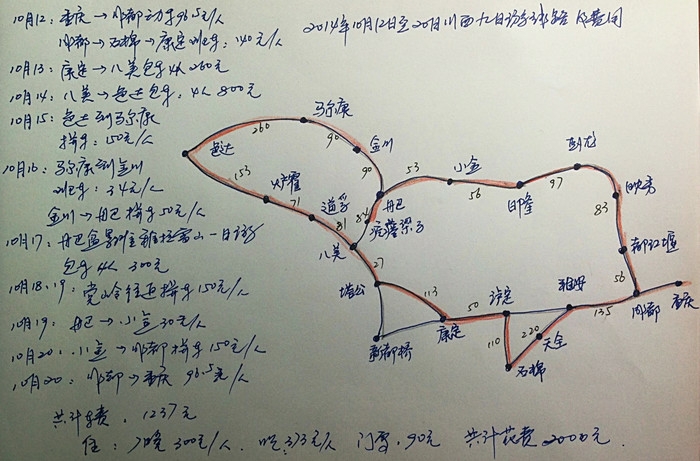 2014年10月12日至20日川西九日游线路及费用
10月12：重庆→成都动车96.5元/人
成都→石棉→康定班车：140元/人
10月13：康定→八美包车4人260元
10月14：八美→色达包车：4人800元
10月15：色达到马尔康
拼车：150元/人
10月16：马尔康到金川
班车：34元/人
金川→丹巴拼车50元/人
10月17：丹巴 一日游
包车4人300元
10月18、19：党岭往返拼车150元/人
10月19：丹巴→小金30元/人
10月20：小金→成都拼车150元/人
10月20：成都→重庆96.5元/人
共计车费：1237元
住：7晚300元/人、吃：373元/人 门票：90元 共计花费2000元
马尔康
260
90
金川
90
色达
153
炉霍
71
道孚
81
84
丹巴
疙瘩梁子
八美
27
塔公
113
新都桥
康定
50
泸定
110
石棉
220
天全
雅安
135
成都
重庆
56
都江堰
83
映秀
卧龙
97
日隆
56
小金
53